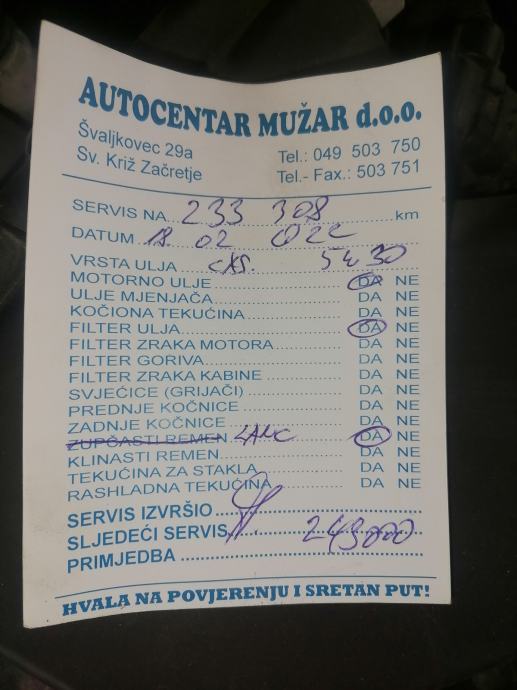 AUTOCENTAR MUŽAR d.o.o.
Švaljkovec 29a
Sv. Križ Začretje
Tel.: 049 503 750
Tel.- Fax.: 503 751
SERVIS NA 233 308 km
DATUM 18. 02 022
VRSTA ULJA 5W30
MOTORNO ULJE DA NE
ULJE MJENJAČA DA NE
KOČIONA TEKUĆINA DA NE
FILTER ULJA DA NE
FILTER ZRAKA MOTORA DA NE
FILTER GORIVA DA NE
FILTER ZRAKA KABINE DA NE
SVJEĆICE (GRIJAČI) DA NE
PREDNJE KOČNICE DA NE
ZADNJE KOČNICE DA NE
ZUPČASTI REMEN LANC DA NE
KLINASTI REMEN DA NE
TEKUĆINA ZA STAKLA DA NE
RASHLADNA TEKUĆINA DA NE
SERVIS IZVRŠIO
SLJEDEĆI SERVIS 243000
PRIMJEDBA
HVALA NA POVJERENJU I SRETAN PUT!